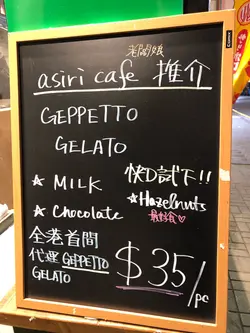 老闆娘
asiri cafe 推介
GEPPETTO
GELATO
☆ MILK
快D試下!!
☆ Chocolate
☆ Hazelnuts
最好食♡
全港首間
代理 GEPPETTO
GELATO
$35/pc